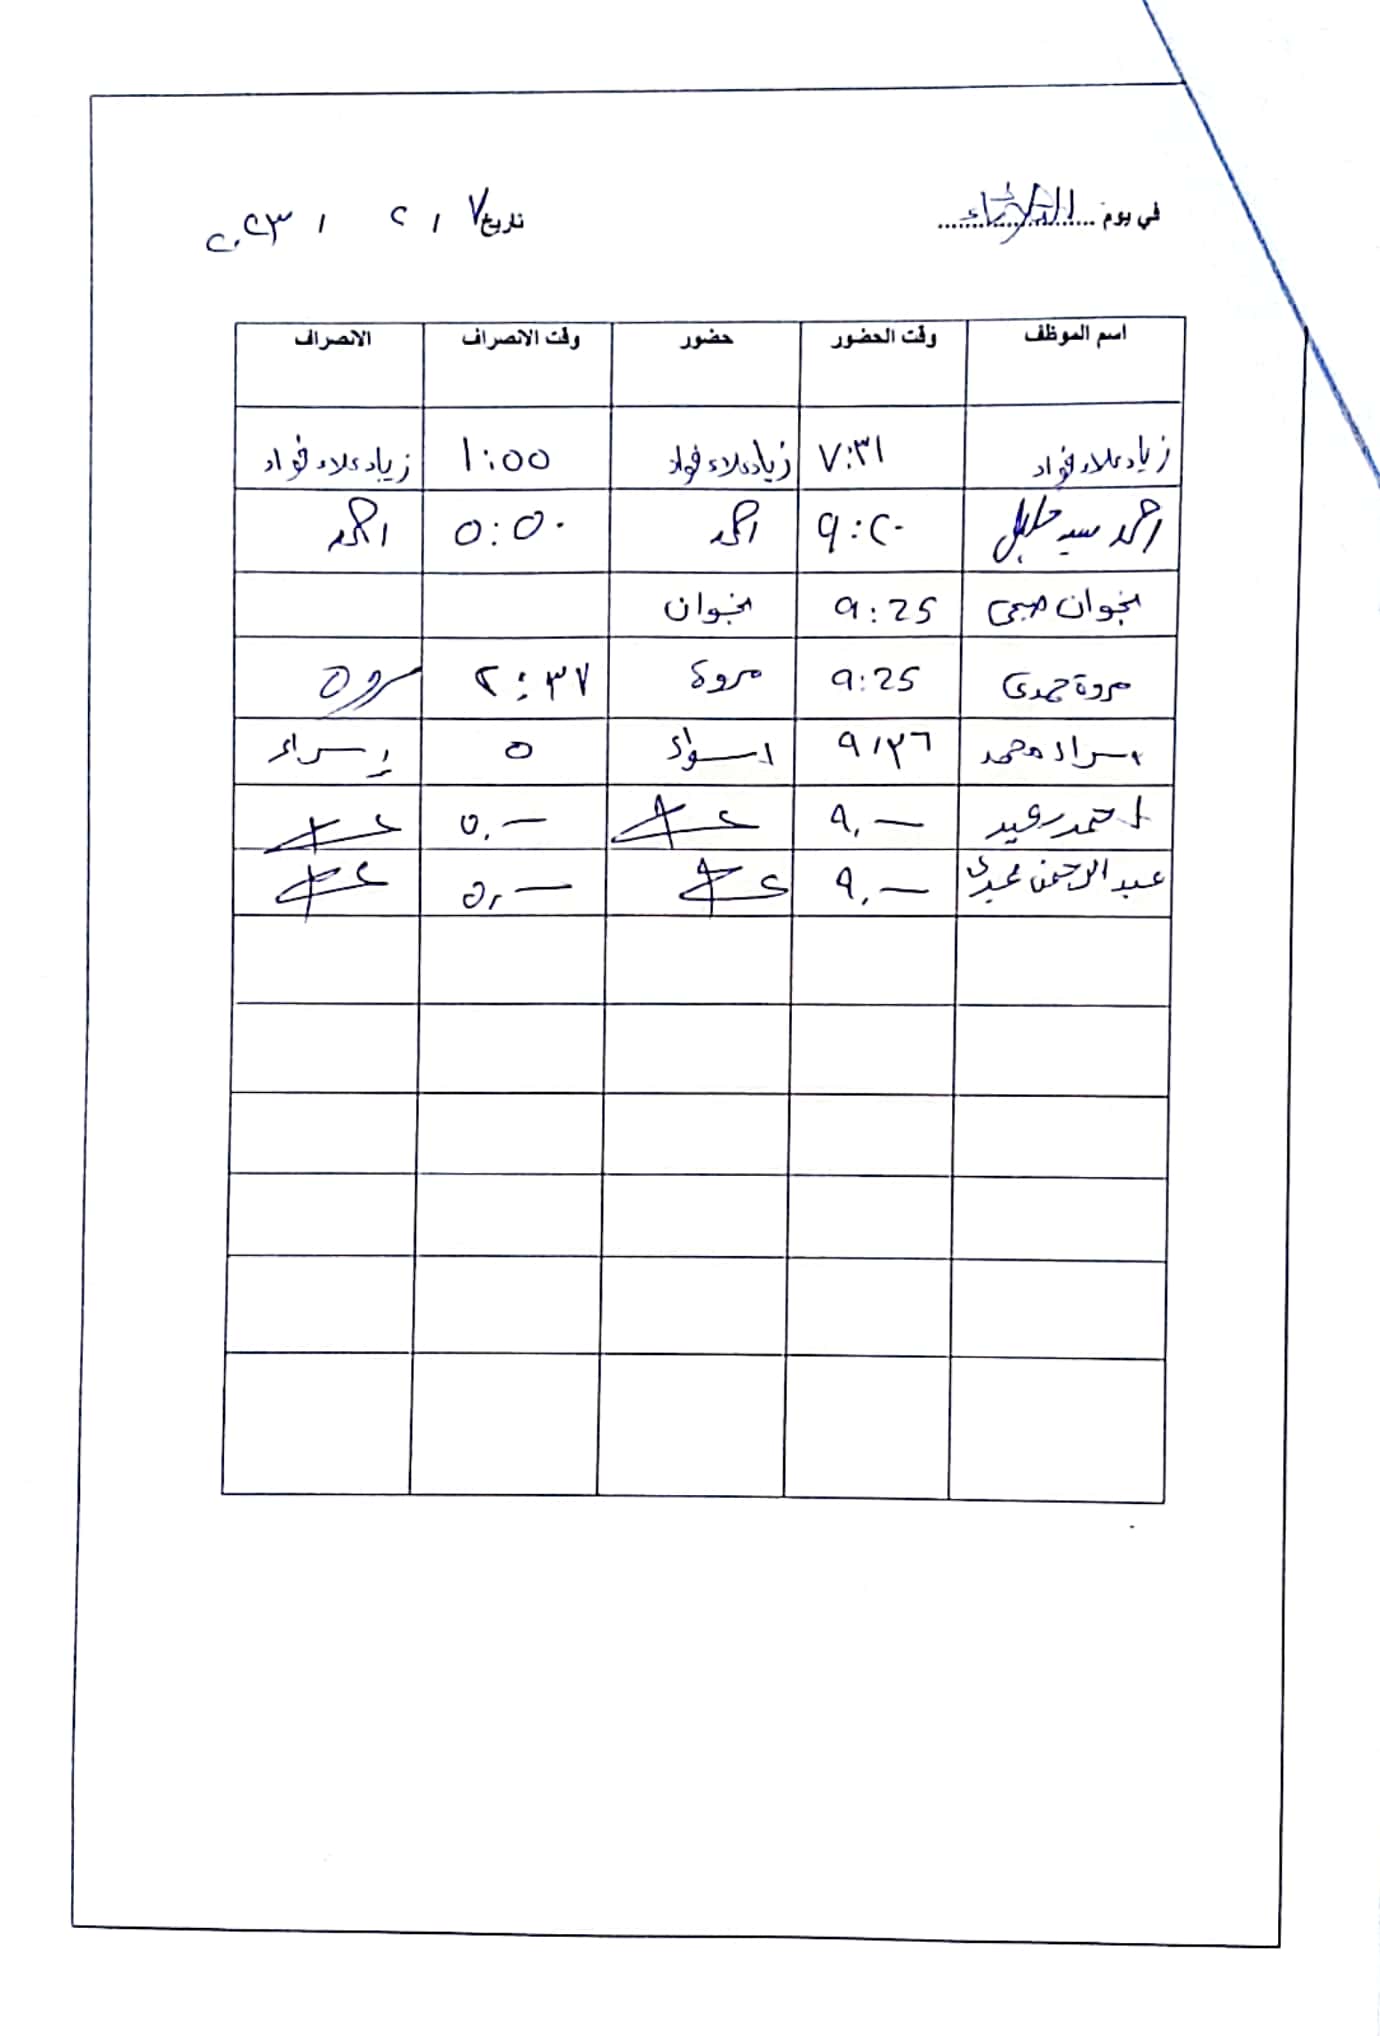 في يوم الثلاثاء تاريخ ٧ / ٢ / ٢٠٢٣
اسم الموظف وقت الحضور حضور وقت الانصراف الانصراف
زياد علاء فواد ٧:٣١ زياد علاء فواد ١:٥٥ زياد علاء فواد
احمد سيد خليل ٩:٢٠ احمد ٥:٥٠ احمد
نجوان صبحى ٩:25 نجوان
مروة حمدى ٩:25 مروة ٢:٣٧ مروه
اسراء محمد ٩/٣٦ اسراء ٥ إسراء
احمد ٩,— ٥,—
عبد الرحمن مجدى ٩,— ٥,—